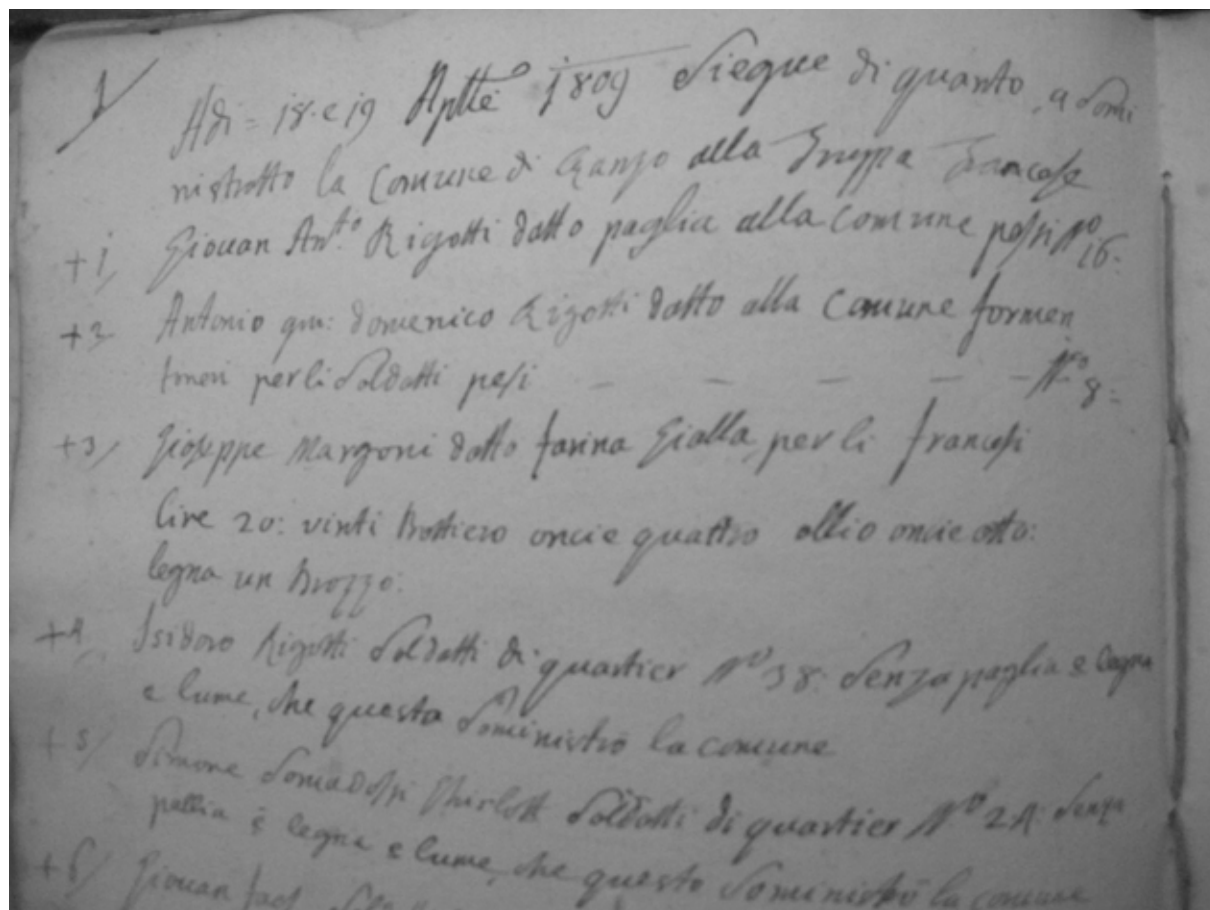 1
Adi = 18. e 19 Aplle 1809 Siegue di quanto, a Somi
nistratto la Comune di Ranzo alla Truppa Francese
+1 Giovan Ant.to Rigotti datto paglia alla Comune pessi No 16:
+2 Antonio qm: Domenico Rigotti datto alla Comune formen
toni per li Soldatti pesi — — — — — No 8:
+3 Gioseppe Margoni datto farina Gialla, per li francesi
lire 20: vinti Bottiero oncie quattro ollio oncie otto:
legna un Brozzo:
+4 Isidoro Rigotti Soldatti di quartier No 38: Senza paglia e legna
e lume, che questo Soministrò la comune
+5 Simone Somadossi Soldatti di quartier No 24: Senza
pallia e legna e lume, che questo Soministrò la comune
+6 Giovan